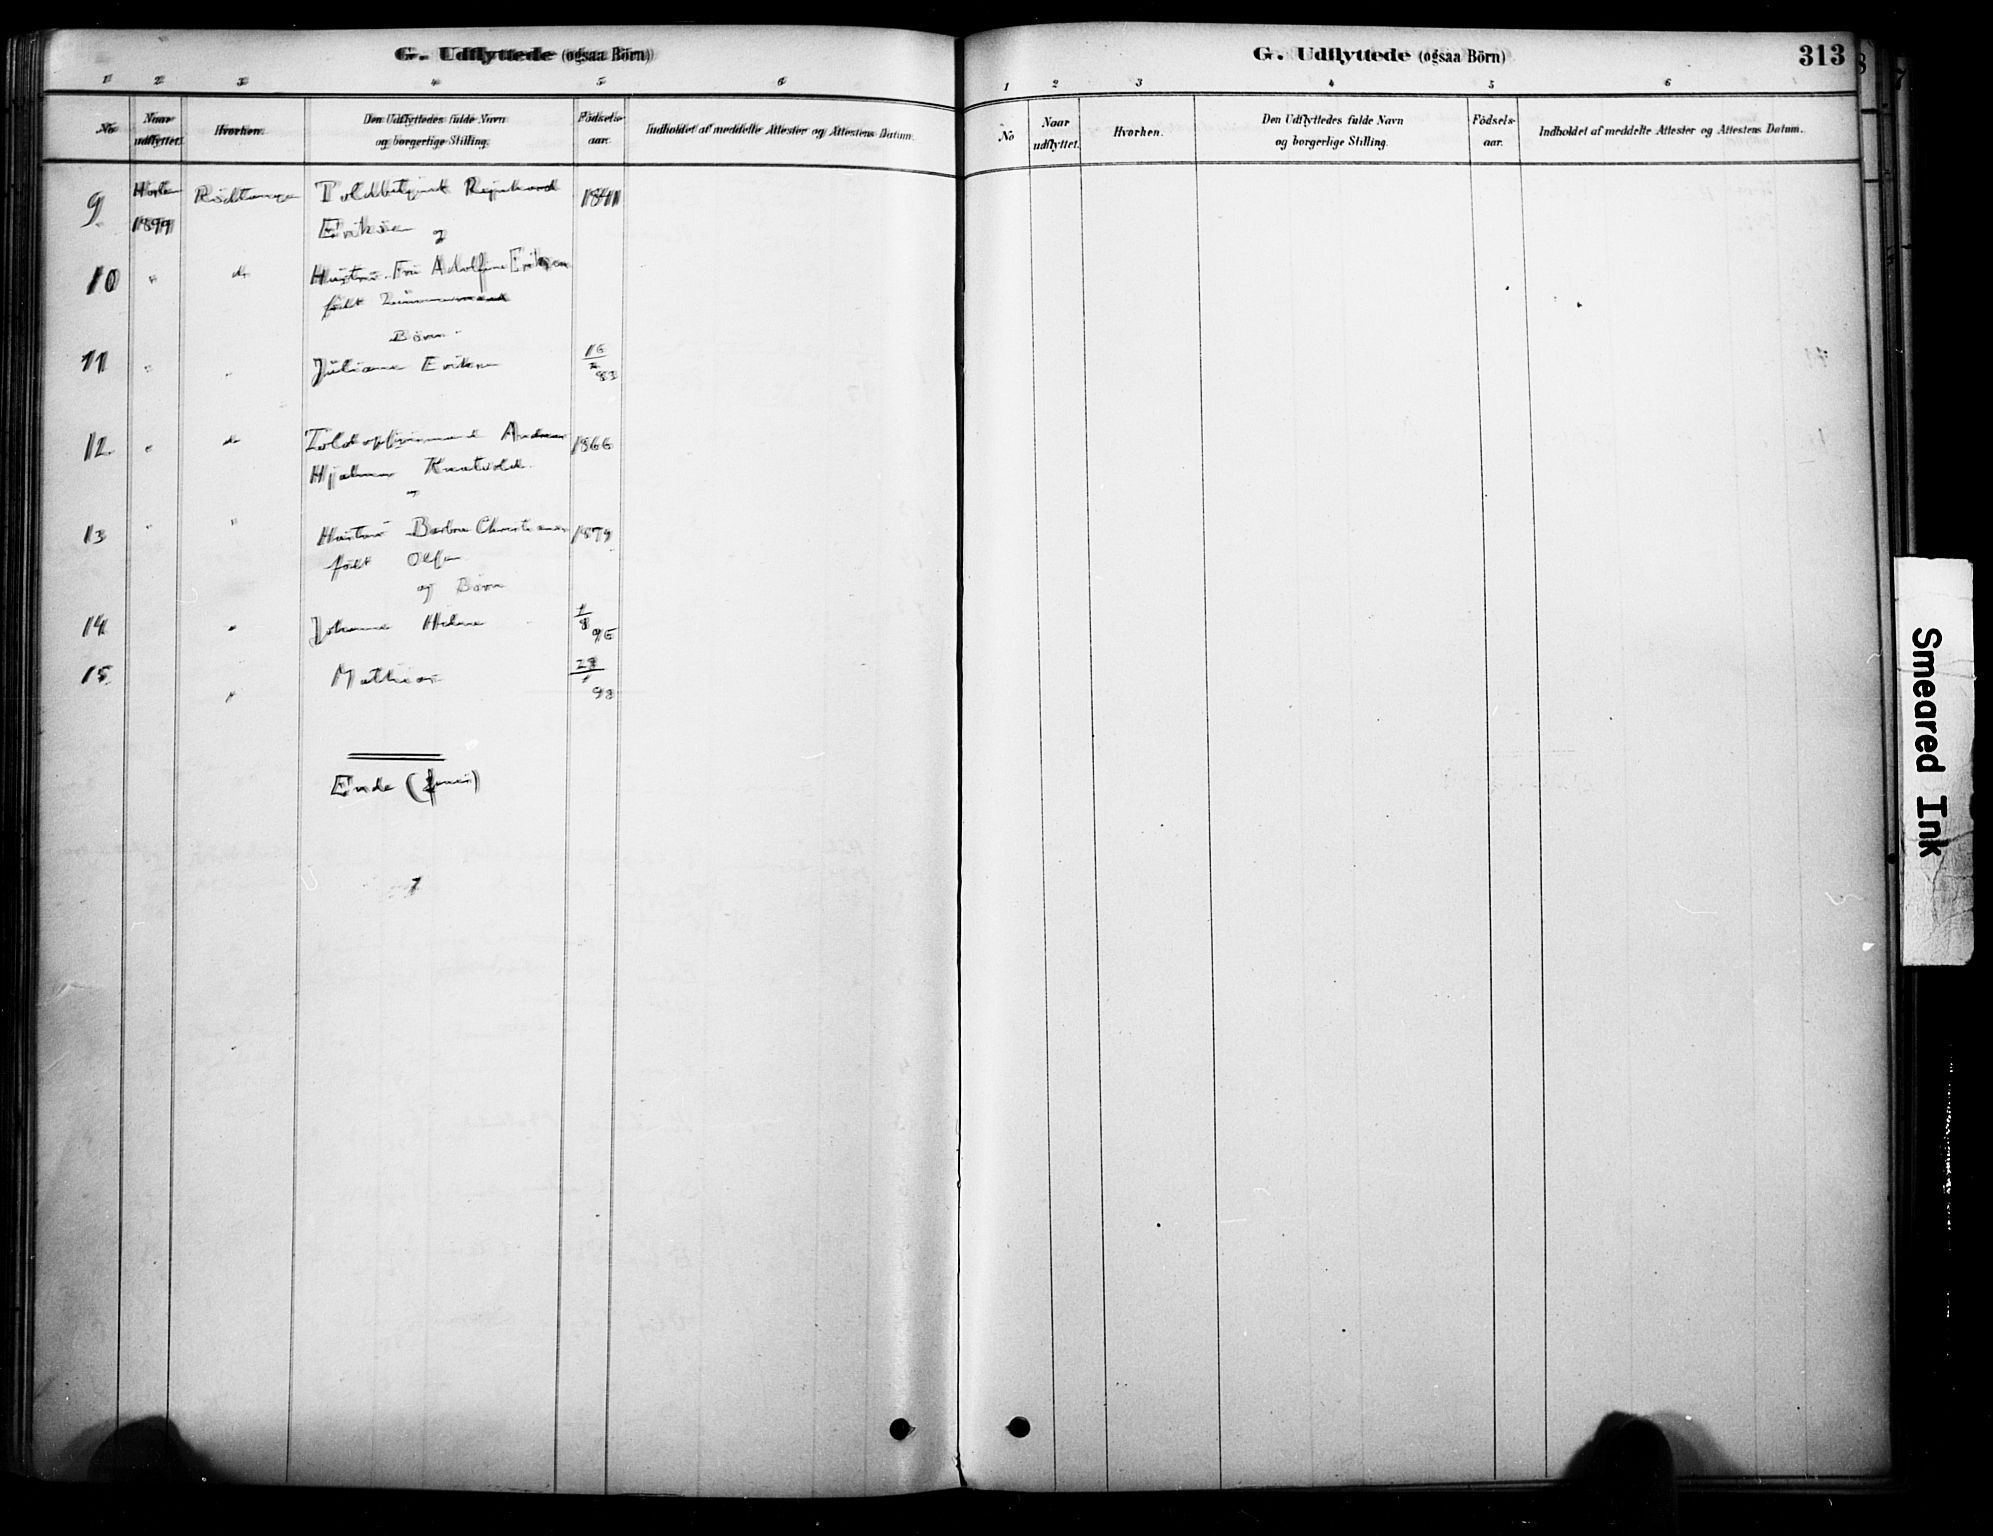 G. Udflyttede (ogsaa Börn)
1 2 3 4 5 6
No
Naar udflyttet.
Hvorhen.
Den Udflyttedes fulde Navn og borgerlige Stilling.
Födsels-aar.
Indholdet af meddelte Attester og Attestens Datum.
9 1899 Rödtangen Reginhard 1841
Eriksen og
10 " do Hustru Fru Adolfine Eriksen
født Zimmermann
Börn
11 " " Juliane Eriksen 16 83
12 " do Andreas 1866
Hjalmar Knatvold
og
13 " " Hustru 1879
født Olsen
og Börn
14 " Johanne 1/8 96
15 " Mathias 98
Ende
G. Udflyttede (ogsaa Börn) 313
1 2 3 4 5 6
No
Naar udflyttet.
Hvorhen.
Den Udflyttedes fulde Navn og borgerlige Stilling.
Födsels-aar.
Indholdet af meddelte Attester og Attestens Datum.
Smeared Ink